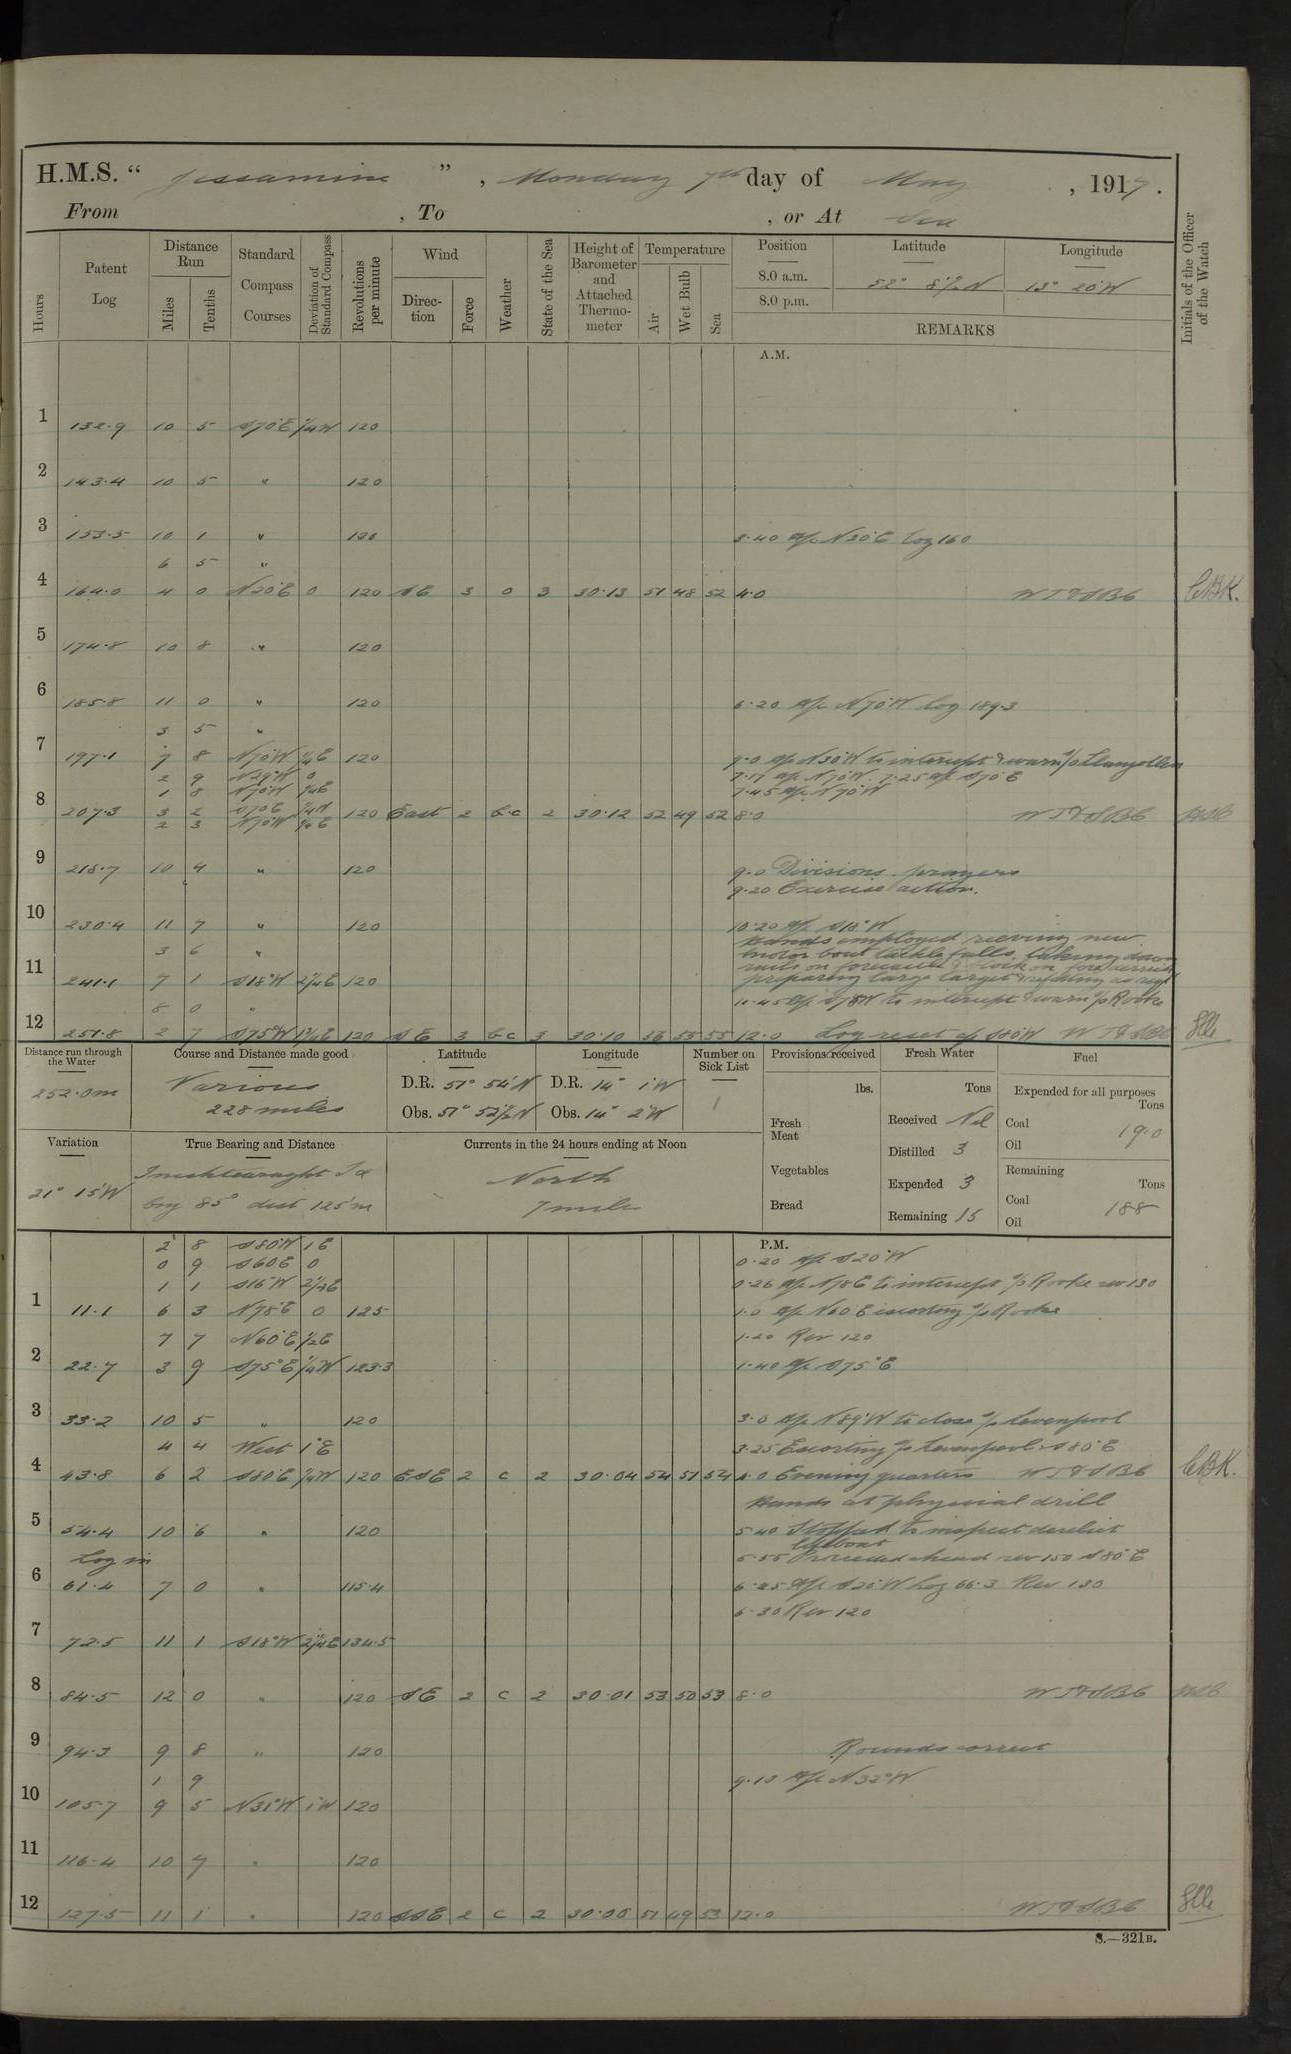 H.M.S. "Jessamine", Monday 7th day of May, 1917.
From , To , or At Sea
Hours
Patent Log
Distance Run
Miles
Tenths
Standard Compass Courses
Deviation of Standard Compass
Revolutions per minute
Wind
Direction
Force
Weather
State of the Sea
Height of Barometer and Attached Thermometer
Temperature
Air
Wet Bulb
Sea
Position
8.0 a.m.
8.0 p.m.
Latitude
52° 8½'N
Longitude
13° 20'W
REMARKS
Initials of the Officer of the Watch
A.M.
1 132.9 10 5 S70°E ¼W 120
2 143.4 10 5 " 120
3 153.5 10 1 " 120 3.40 a/c N20°E log 160
6 5 "
4 164.0 4 0 N20°E 0 120 SE 3 o 3 30.13 51 48 52 4.0 WT&SBC CBK.
5 174.8 10 8 " 120
6 185.8 11 0 " 120 6.20 a/c N70°W log 189.3
3 5 "
7 197.1 7 8 N70°W ¼E 120 7.0 a/c N30°W to intercept & warn s/s Llangollen
2 9 N29°W 0 7.17 a/c N70°W. 7.25 a/c S70°E
1 8 N70°W ¼E 7.45 a/c N70°W
8 207.3 3 2 S70°E ¼W 120 East 2 b.c 2 30.12 52 49 52 8.0 WT&SBC
2 3 N70°W ¼E
9 218.7 10 4 " 120 9.0 Divisions. prayers
9.20 Exercise action.
10 230.4 11 7 " 120 10.20 a/c S18°W
3 6 " Hands employed reeving new
motor boat tackle falls, taking down
11 241.1 7 1 S18°W 2¼E 120 preparing large target
8 0 " 11.45 a/c S78°W to intercept & warn s/s Rooke
12 251.8 2 7 S75°W 1¼E 120 SE 3 bc 3 30.10 56 53 55 12.0 Log reset c/o S80°W WT&SBC
Distance run through the Water
252.0m
Course and Distance made good
Various
228 miles
Latitude
D.R. 51° 54'N
Obs. 51° 52½'N
Longitude
D.R. 14° 1'W
Obs. 14° 2'W
Number on Sick List
1
Provisions received
lbs.
Fresh Meat
Vegetables
Bread
Fresh Water
Tons
Received Nil
Distilled 3
Expended 3
Remaining 15
Fuel
Expended for all purposes
Tons
Coal
Oil
19.0
Remaining
Tons
Coal
Oil
188
Variation
21° 15'W
True Bearing and Distance
Inishtearaght Id
brg 85° dist 125'm
Currents in the 24 hours ending at Noon
North
7 mile
P.M.
2 8 S80°W 1°E
0 9 S60E 0 0.20 a/c S20°W
1 1 S16°W 2¼E 0.26 a/c N78°E to intercept s/s Rooke rev 130
1 11.1 6 3 N78°E 0 125 1.0 a/c N60°E escorting s/s Rooke
7 7 N60°E ½E 1.20 Rev 120
2 22.7 3 9 S75°E ¼W 123.3 1.40 a/c S75°E
3 33.2 10 5 " 120 3.0 a/c N89°W to close s/s Levenpool
4 4 West 1°E 3.25 Escorting s/s Levenpool S80°E
4 43.8 6 2 S80°E ¼W 120 ESE 2 c 2 30.04 54 51 54 4.0 Evening quarters WT&SBC CBK.
Hands at physical drill
5 54.4 10 6 " 120 5.40 Stopped to inspect derelict
lifeboat
Log in 5.55 Proceeded ahead rev 150 S80°E
6 61.4 7 0 " 115.4 6.25 a/c S20°W Log 66.3 Rev 130
6.30 Rev 120
7 72.5 11 1 S18°W 2¼E 134.5
8 84.5 12 0 " 120 SE 2 c 2 30.01 53 50 53 8.0 WT&SBC
9 94.3 9 8 " 120 Rounds correct
1 9 9.10 a/c N32°W
10 105.7 9 5 N31°W 1°W 120
11 116.4 10 7 " 120
12 127.5 11 1 " 120 SSE 2 c 2 30.00 51 49 53 12.0 WT&SBC
S.—321B.